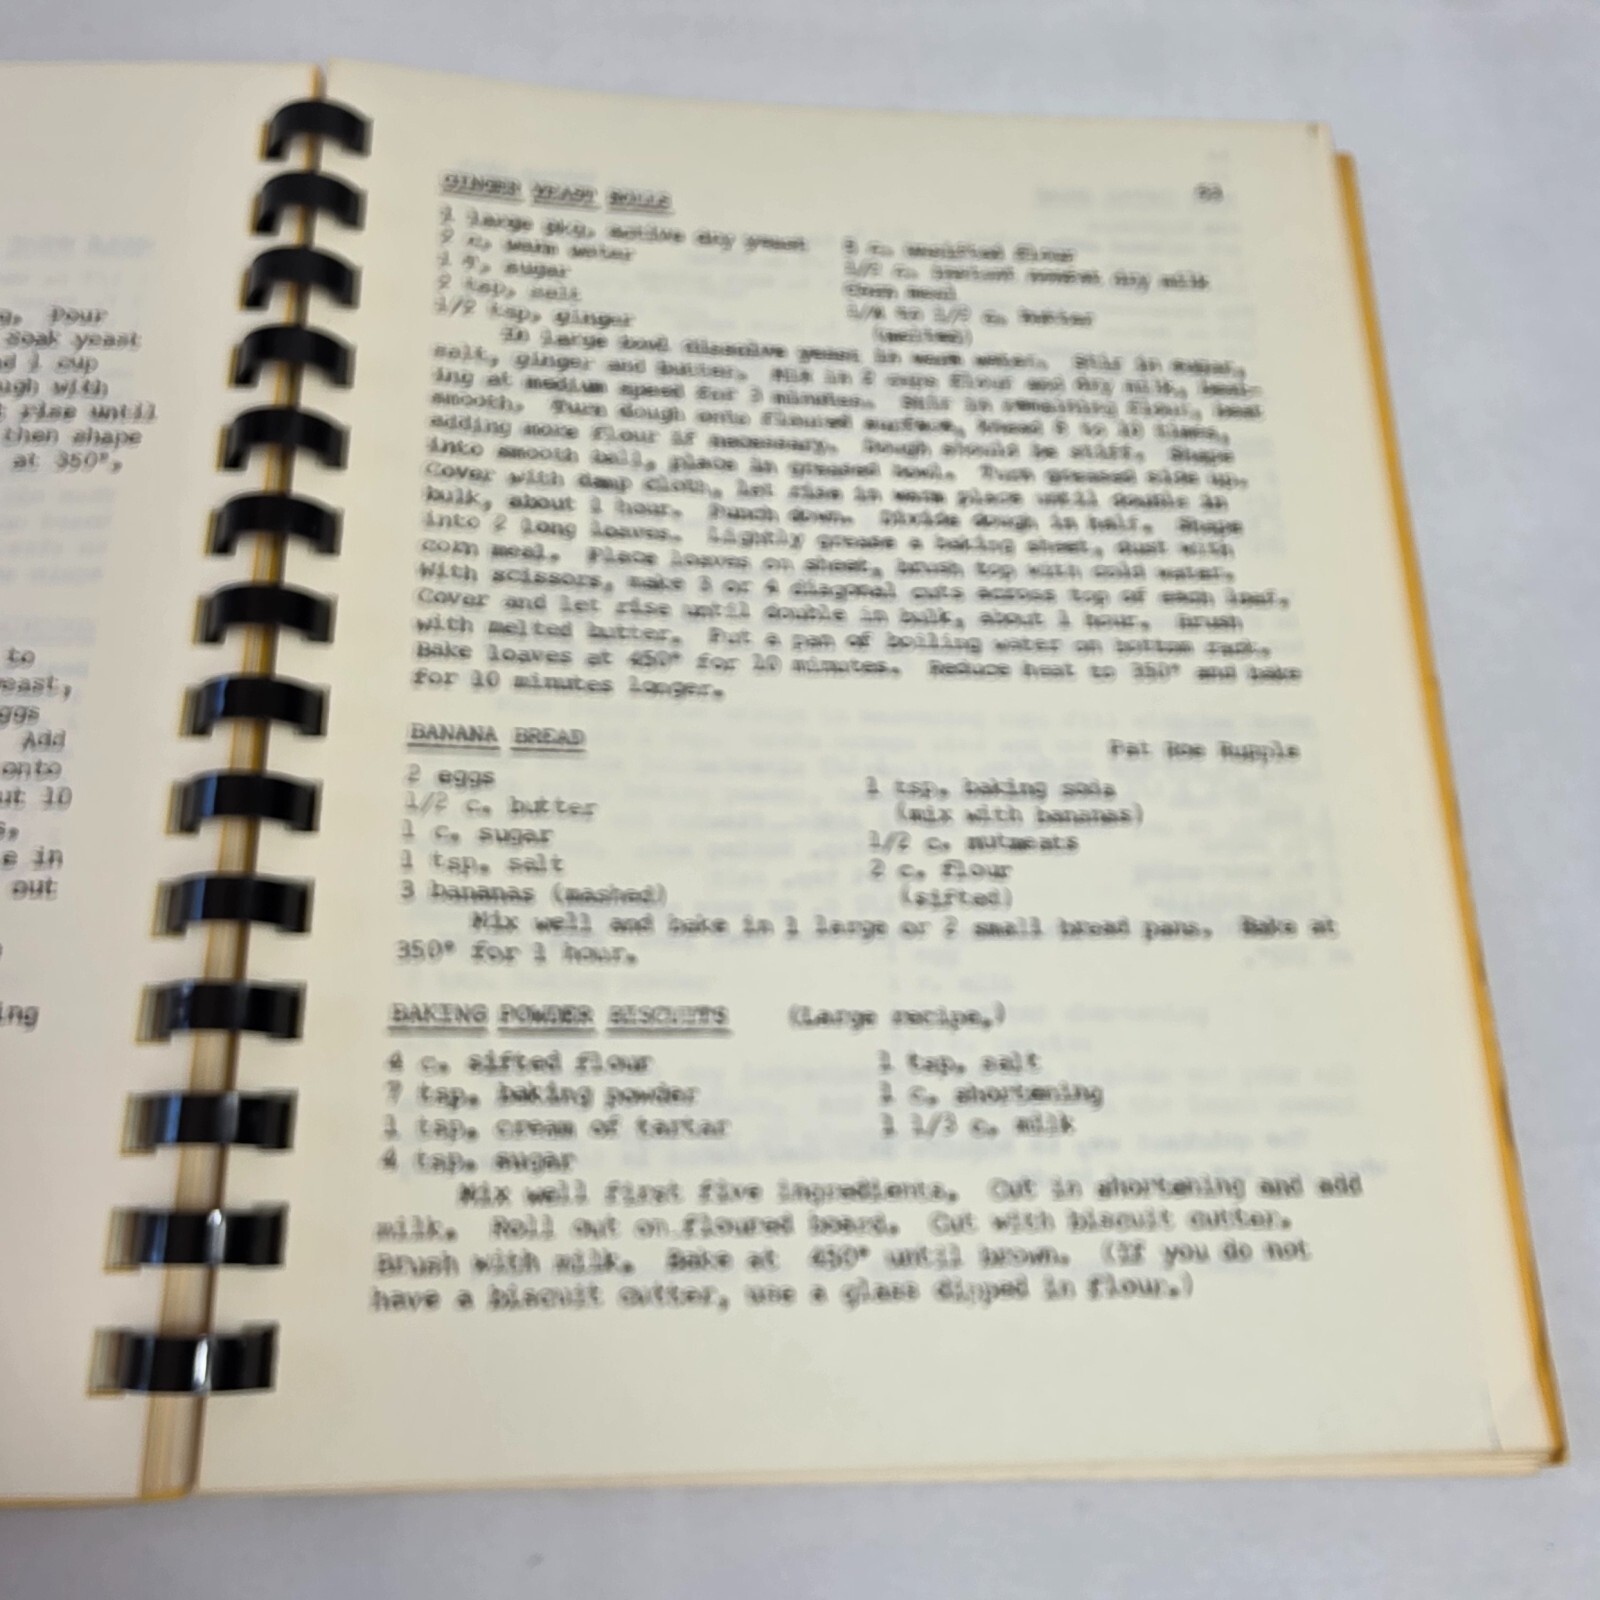 g, Pour
Soak yeast
d 1 cup
ugh with
t rise until
then shape
at 350°,
to
east,
ggs
Add
onto
ut 10
s,
e in
out
ing
GINGER YEAST ROLLS
1 large pkg, active dry yeast
2 c, warm water
1 T, sugar
2 tsp, salt
1/2 tsp, ginger
flour
1/2 c. instant dry milk
Corn meal
c. butter
(melted)
In large bowl dissolve yeast in warm water. Stir in sugar,
salt, ginger and butter. Mix in 2 cups flour and dry milk, beat-
ing at medium speed for 3 minutes. Stir in remaining flour, beat
smooth. Turn dough onto floured surface, knead to times,
adding more flour if necessary. Dough should be stiff. Shape
into smooth ball, place in greased bowl. Turn greased side up.
Cover with damp cloth, let rise in warm place until double in
bulk, about 1 hour. Punch down. Divide dough in half. Shape
into 2 long loaves. Lightly grease a baking sheet, dust with
corn meal. Place loaves on sheet, brush top with cold water.
With scissors, make 3 or 4 diagonal cuts across top of each loaf.
Cover and let rise until double in bulk, about 1 hour. Brush
with melted butter. Put a pan of boiling water on bottom rack.
Bake loaves at 450° for 10 minutes. Reduce heat to 350° and bake
for 10 minutes longer.
BANANA BREAD
Pat Roe Rupple
2 eggs
1/2 c. butter
1 c. sugar
1 tsp. salt
3 bananas (mashed)
1 tsp. baking soda
(mix with bananas)
1/2 c. nutmeats
2 c. flour
(sifted)
Mix well and bake in 1 large or 2 small bread pans. Bake at
350° for 1 hour.
BAKING POWDER BISCUITS (Large recipe.)
4 c. sifted flour
7 tsp. baking powder
1 tsp. cream of tartar
4 tsp. sugar
1 tsp. salt
1 c. shortening
1 1/3 c. milk
Mix well first five ingredients. Cut in shortening and add
milk. Roll out on floured board. Cut with biscuit cutter.
Brush with milk. Bake at 450° until brown. (If you do not
have a biscuit cutter, use a glass dipped in flour.)